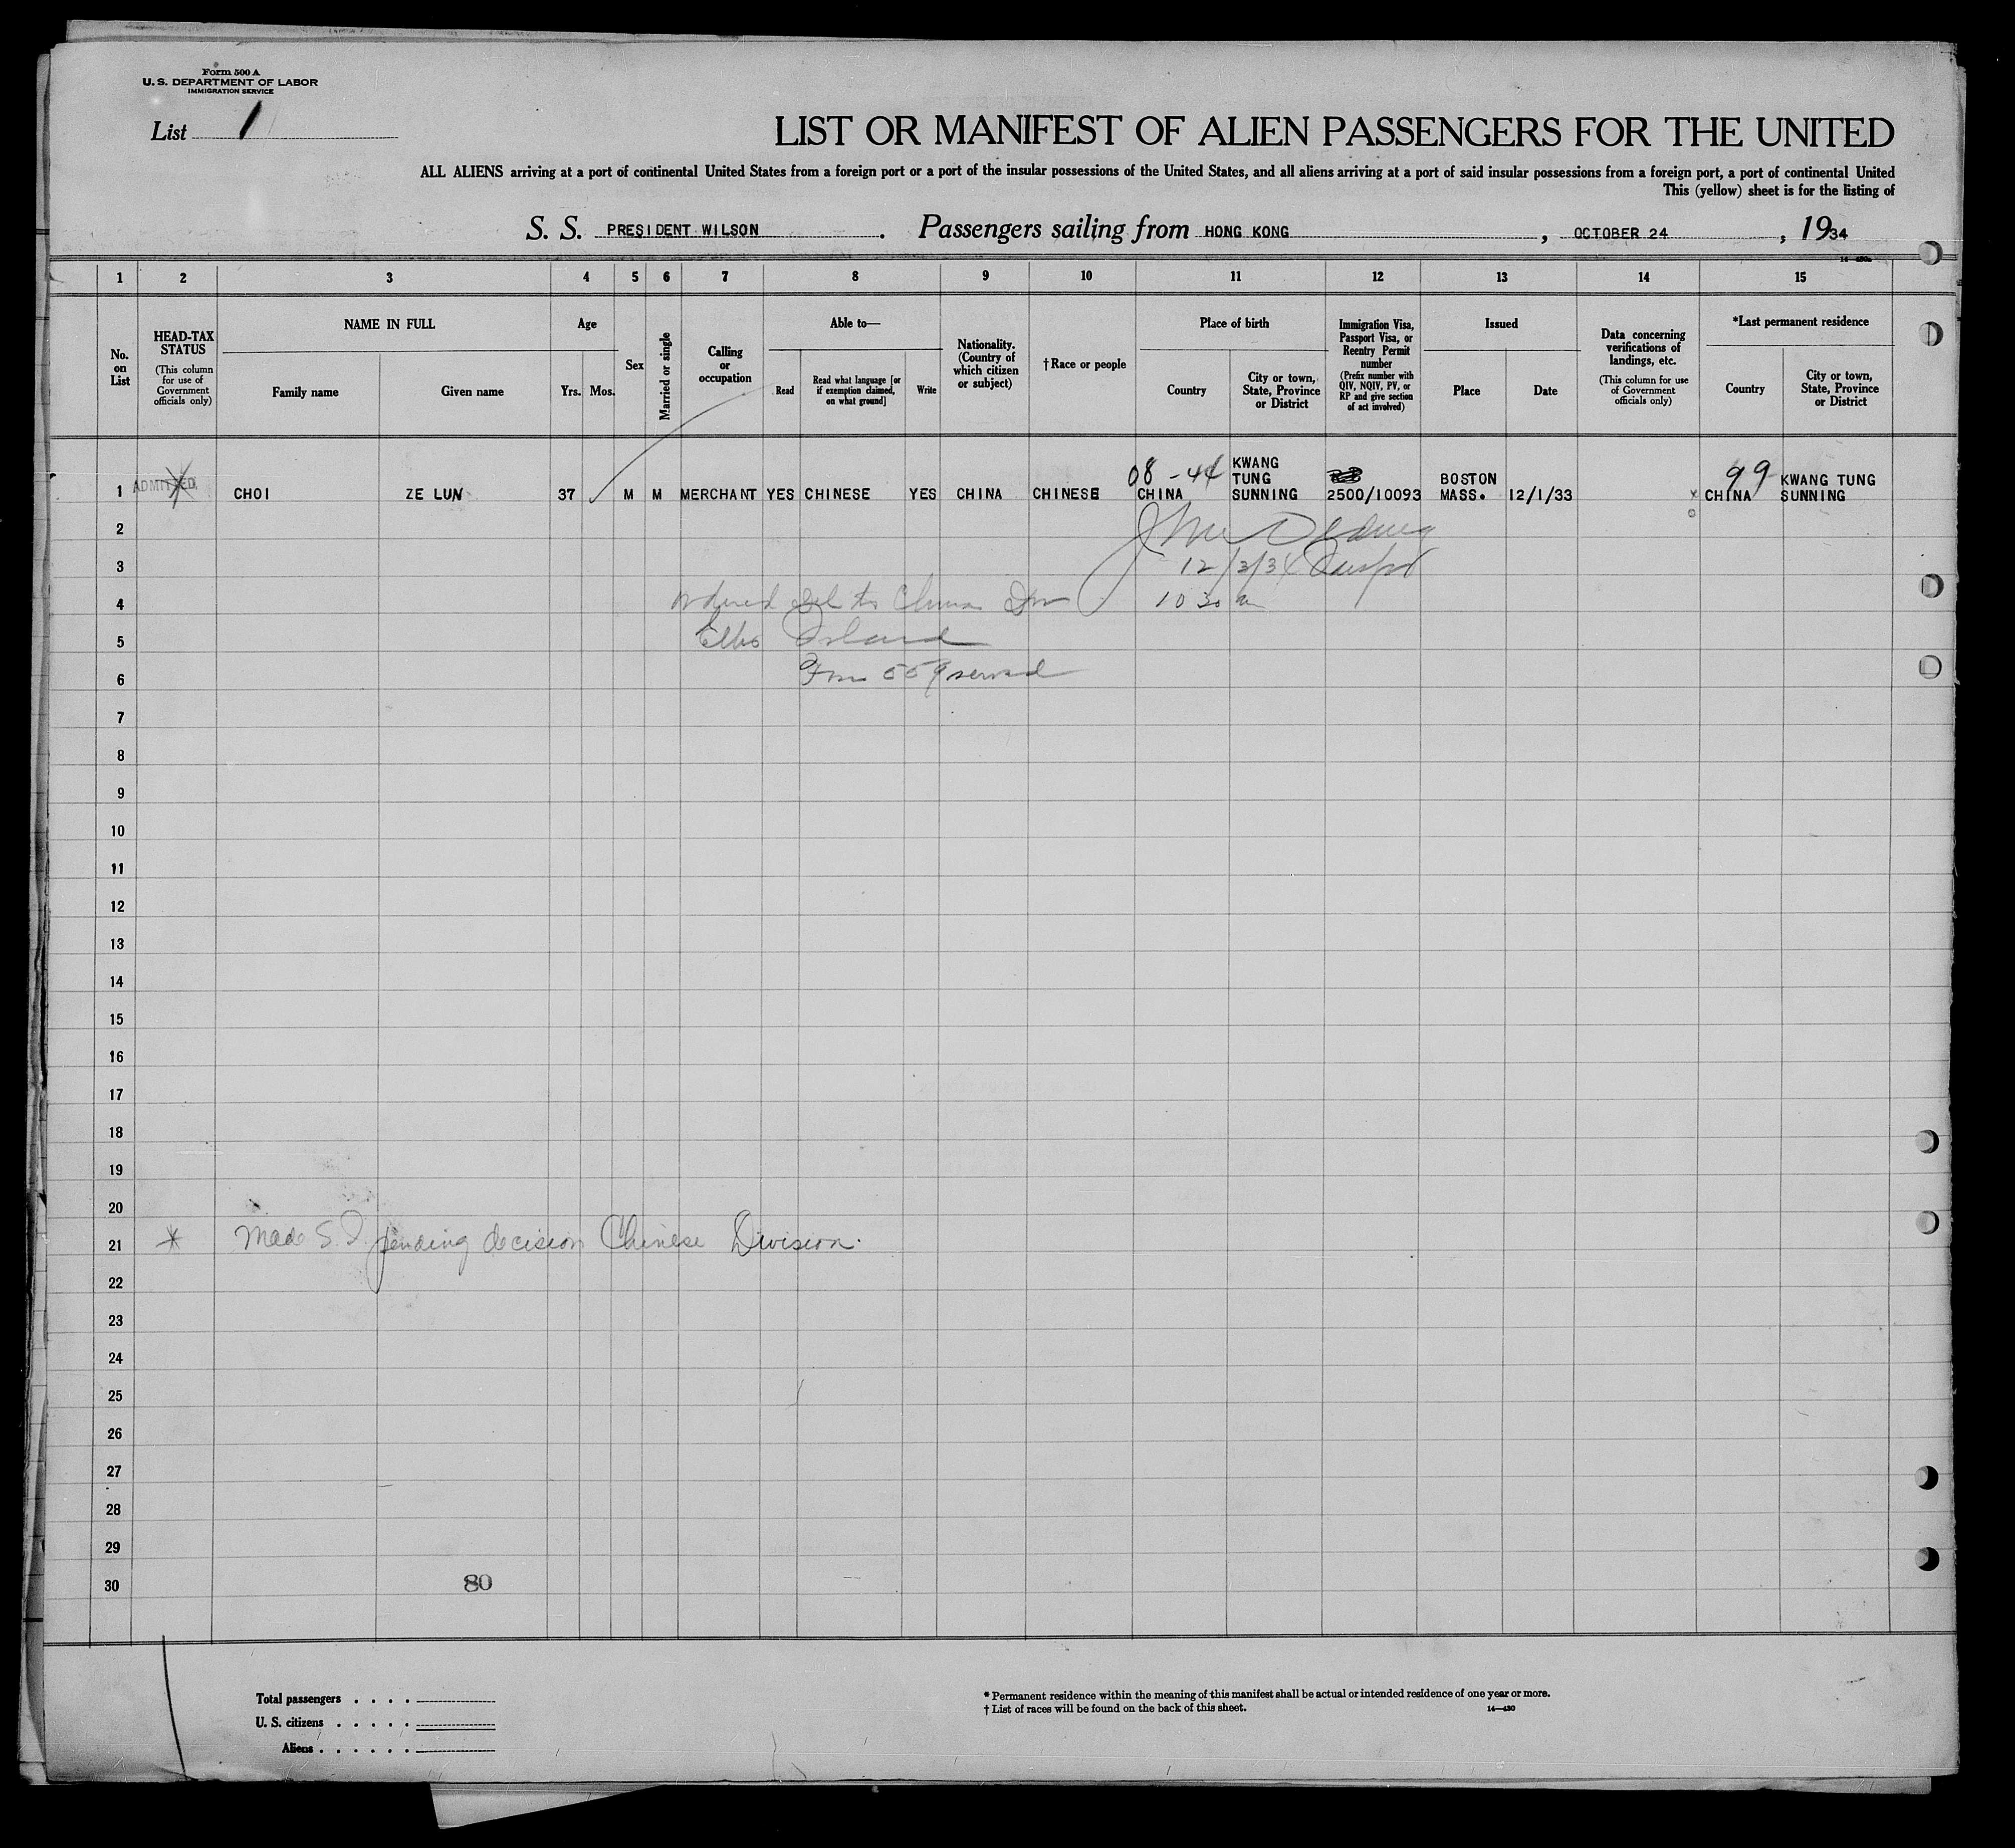 Form 500 A
U. S. DEPARTMENT OF LABOR
IMMIGRATION SERVICE
List 1
LIST OR MANIFEST OF ALIEN PASSENGERS FOR THE UNITED
ALL ALIENS arriving at a port of continental United States from a foreign port or a port of the insular possessions of the United States, and all aliens arriving at a port of said insular possessions from a foreign port, a port of continental United
This (yellow) sheet is for the listing of
S. S. PRESIDENT WILSON. Passengers sailing from HONG KONG, OCTOBER 24, 1934
1 2 3 4 5 6 7 8 9 10 11 12 13 14 15
No. on List
HEAD-TAX STATUS (This column for use of Government officials only)
NAME IN FULL
Family name Given name
Age
Yrs. Mos.
Sex
Married or single
Calling or occupation
Able to—
Read
Read what language [or if exemption claimed, on what ground]
Write
Nationality. (Country of which citizen or subject)
†Race or people
Place of birth
Country
City or town, State, Province or District
Immigration Visa, Passport Visa, or Reentry Permit number (Prefix number with QIV, NQIV, PV, or RP and give section of act involved)
Issued
Place Date
Data concerning verifications of landings, etc. (This column for use of Government officials only)
*Last permanent residence
Country
City or town, State, Province or District
1 ADMITTED CHOI ZE LUN 37 M M MERCHANT YES CHINESE YES CHINA CHINESE 08-44 CHINA KWANG TUNG SUNNING 2500/10093 BOSTON MASS. 12/1/33 99 CHINA KWANG TUNG SUNNING
2
3 12/3/34
4 ordered to Chinese Div 10 30 am
5 Ellis Island
6 Form 559 served
7
8
9
10
11
12
13
14
15
16
17
18
19
20
21 * Made S.I. pending decision Chinese Division.
22
23
24
25
26
27
28
29
30 80
Total passengers . . . .
U. S. citizens . . . . .
Aliens . . . . . .
* Permanent residence within the meaning of this manifest shall be actual or intended residence of one year or more.
† List of races will be found on the back of this sheet. 14—430